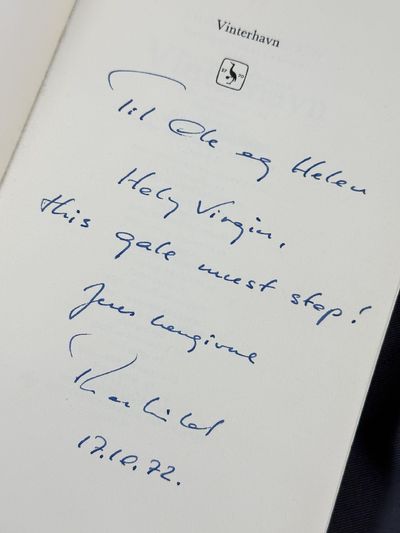 Vinterhavn
17 70
Til Ole og Helen
Holy Virgin,
this gale must stop!
Jeres hengivne
Thorkild
17.10.72.